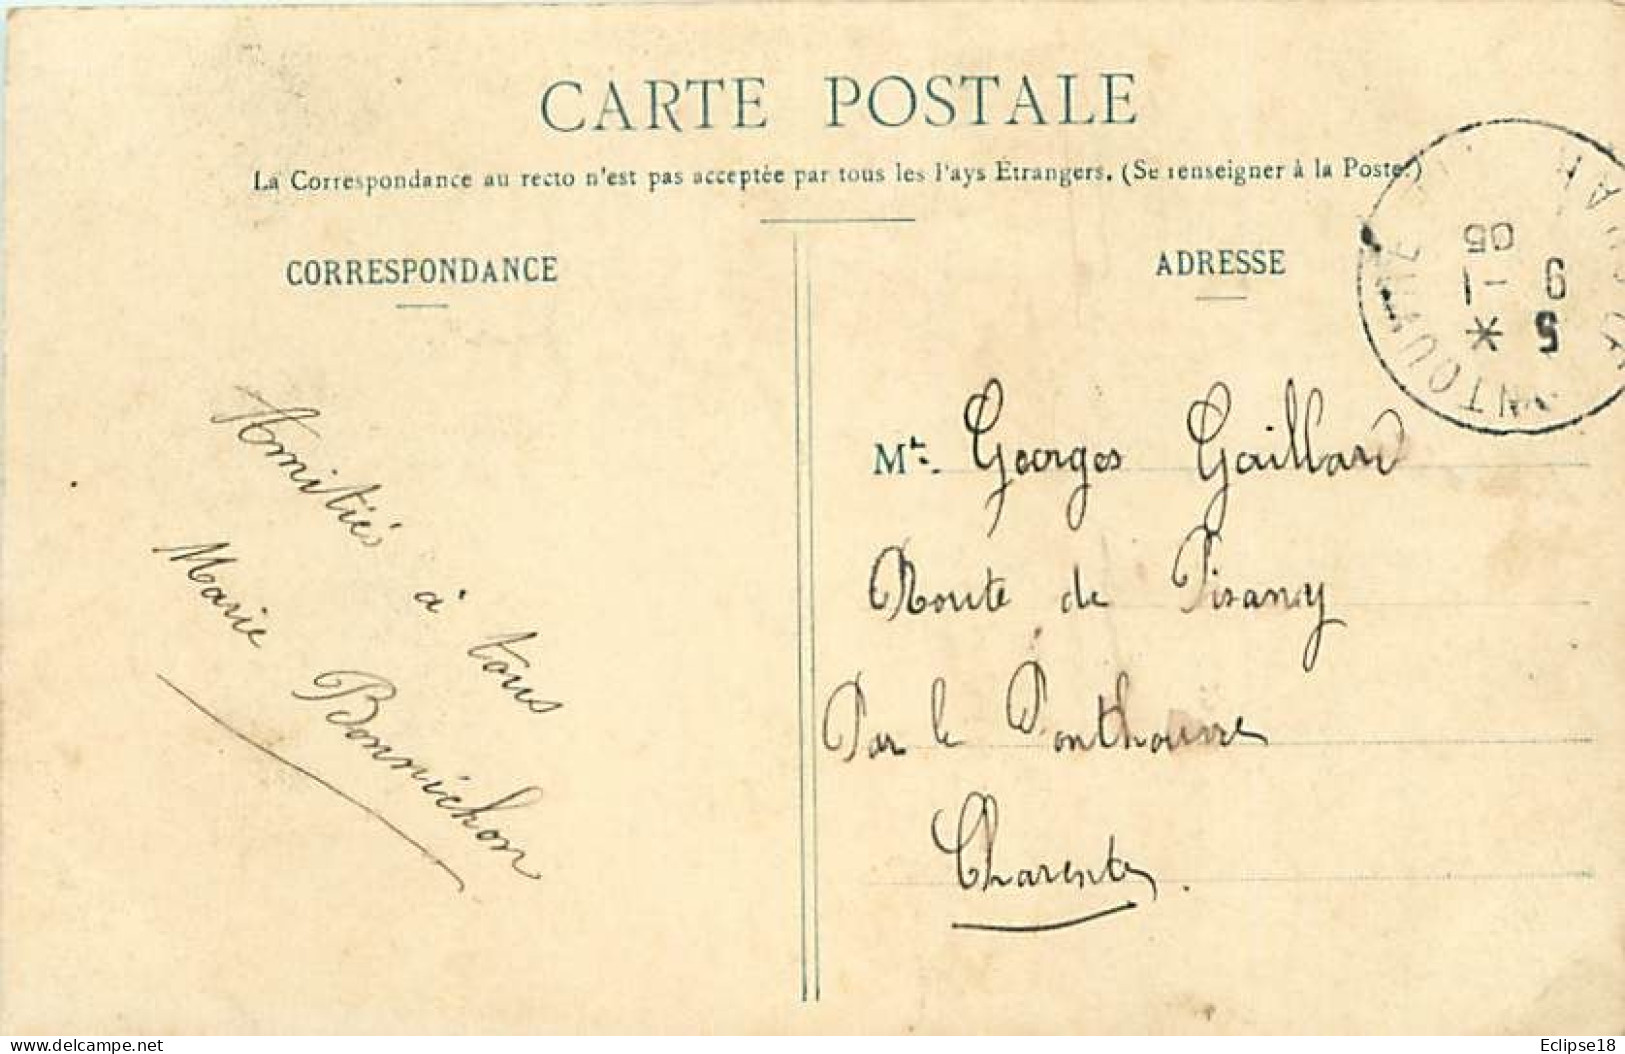 CARTE POSTALE
La Correspondance au recto n'est pas acceptée par tous les Pays Etrangers. (Se renseigner à la Poste.)
CORRESPONDANCE
ADRESSE
Amitiés à tous
Marie Bonnichon
Mr. Georges Gaillard
Route de Pisany
Par le Ponthouvre
Charente.
5 *
9 -1
05
Eclipse18